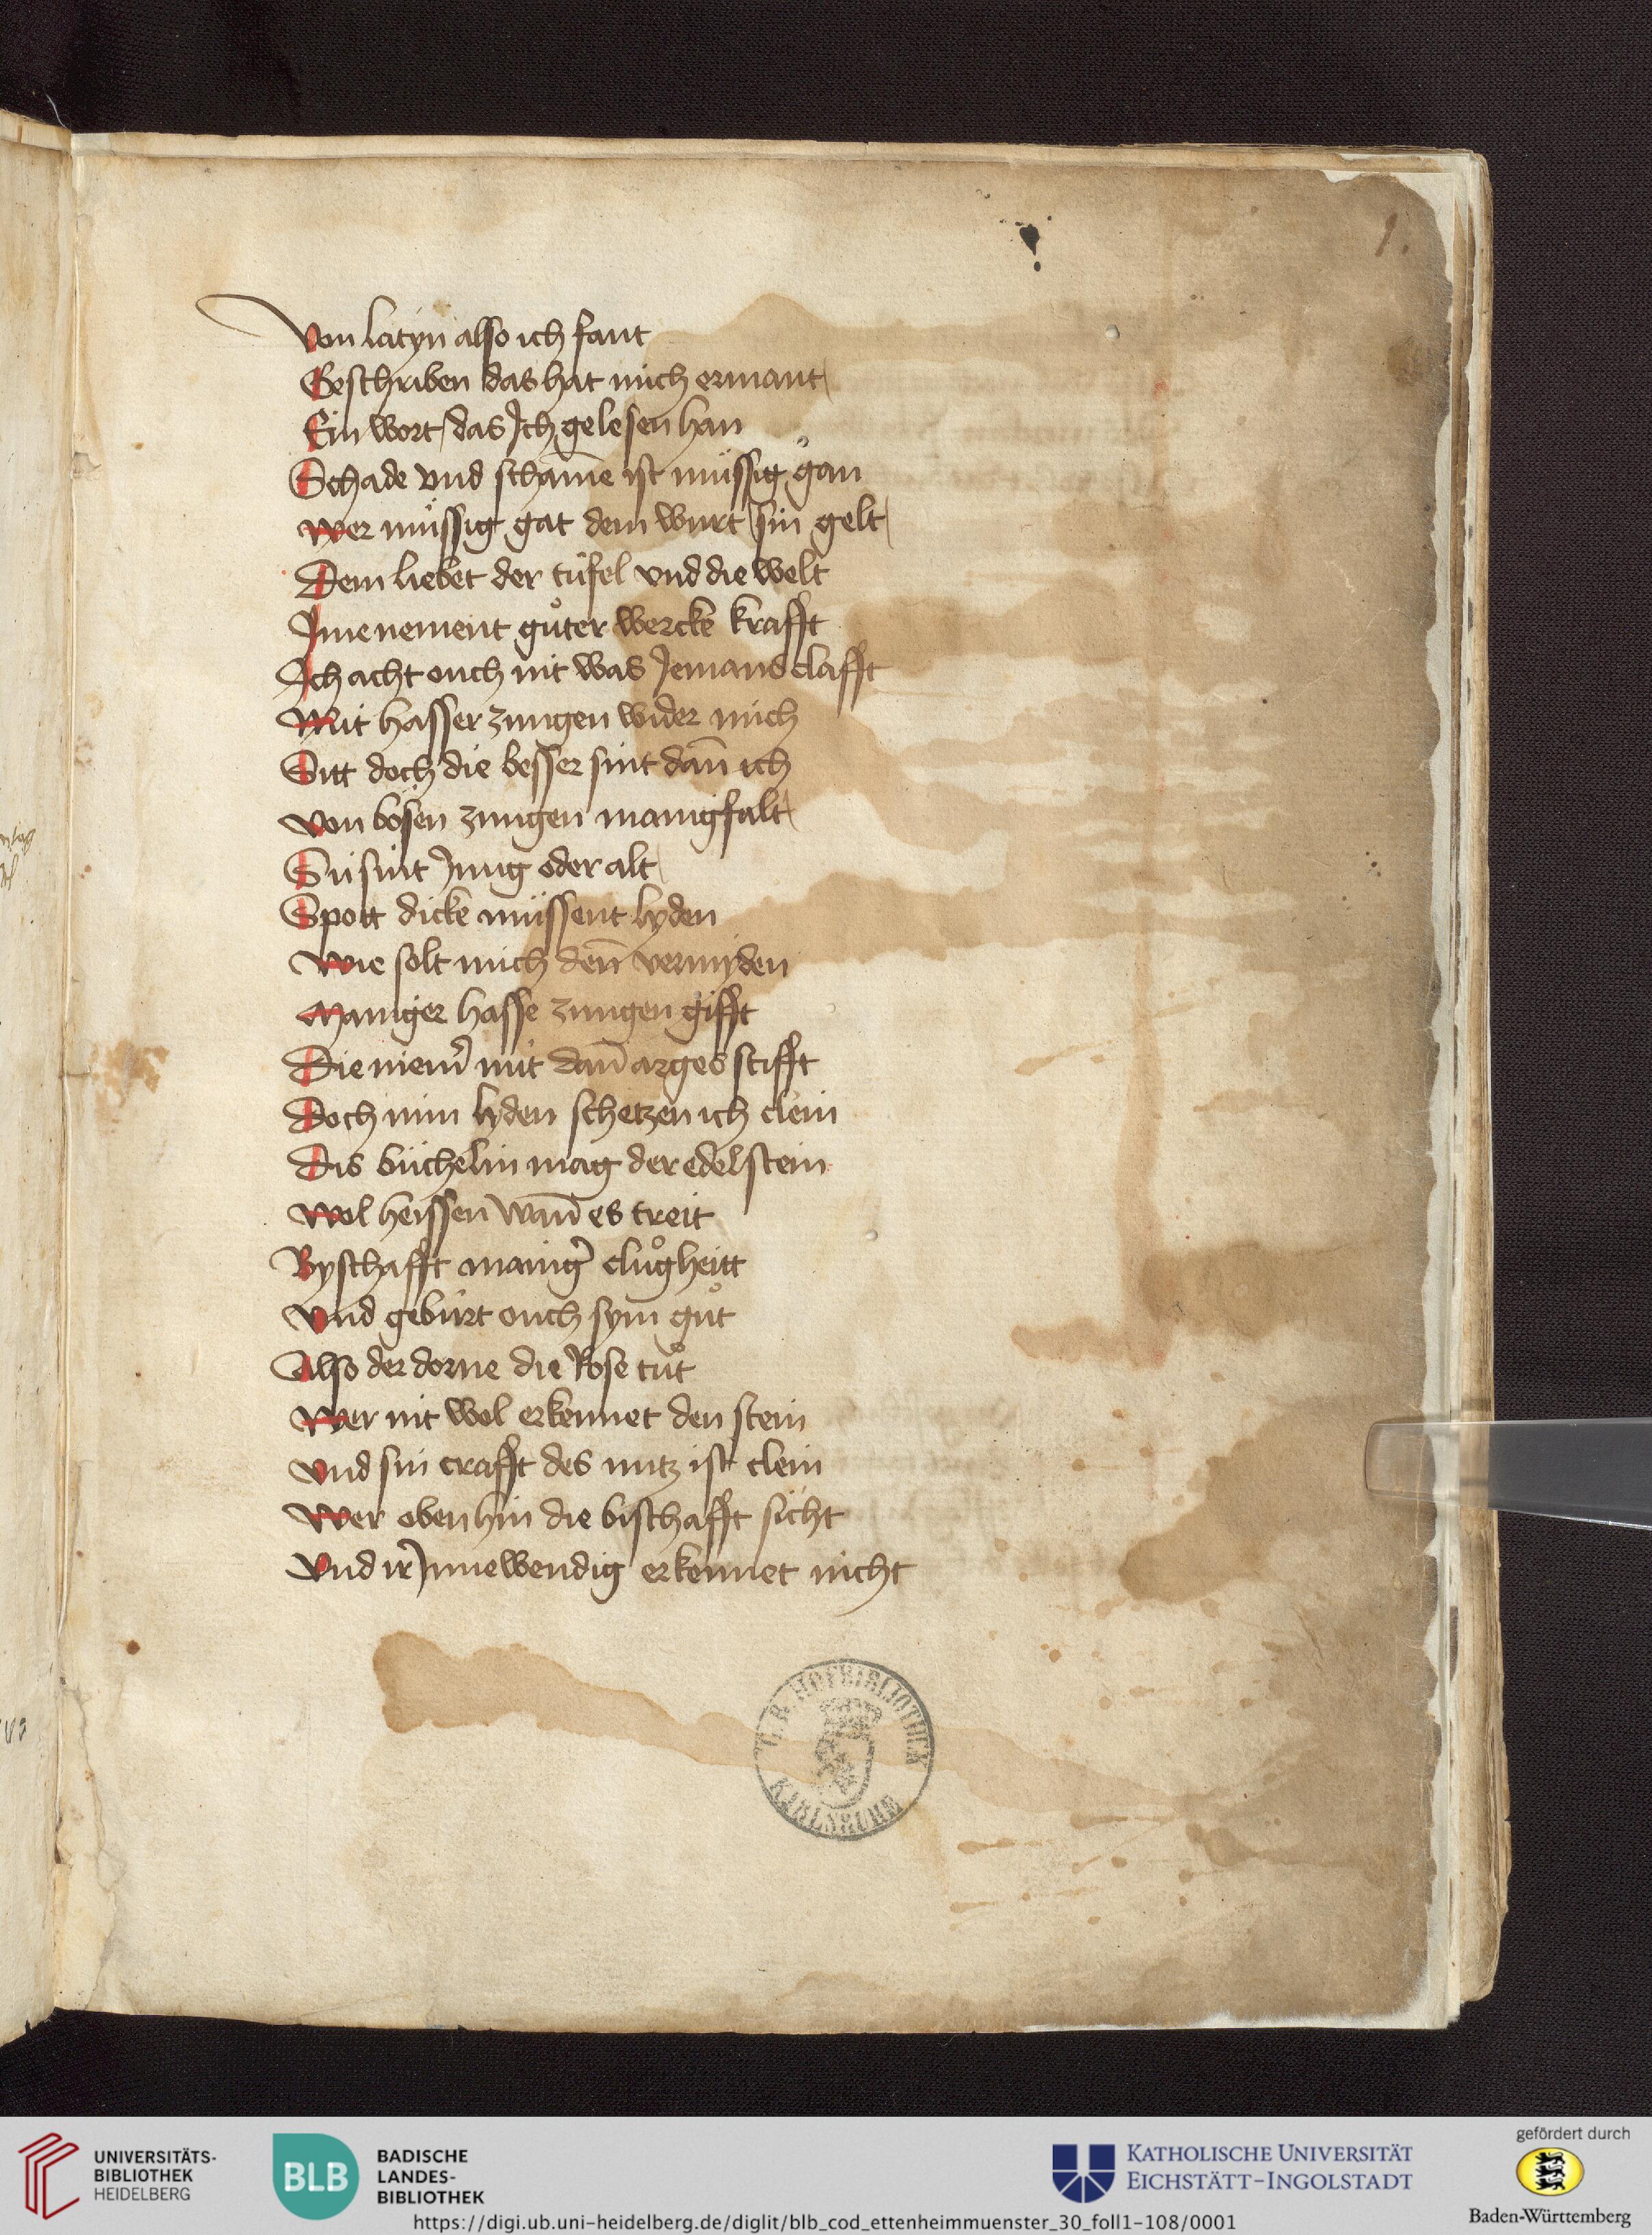 1.
Von latyn also ich fant
Geschriben das hat mich ermant
Ein wort das Jch gelesen han
Schade vnd scham̄e ist müssig gan
Wer müssig gat dem wurt sin gelt
Dem liebet der tüfel vnd die welt
Jme nement gůter wercke krafft
Jch acht ouch nit was Jemand clafft
Mit hasser zungen wider mich
Sitt doch die besser sint dan̄ ich
Von bösen zungen manigfalt
Sü sint Jung oder alt
Spott dicke müssent lyden
Wie solt mich den̄ vermyden
Maniger hasse zungen gifft
Die niem̉ nüt dan̄ arges stifft
Doch min lyden schetzen ich clein
Dis büchelin mag der edelstein
Wol heissen wan̄ es treit
Byschafft manig̉ clůgheitt
Vnd gebürt ouch sym gůt
Also der dorne die Rose tůt
Wer nit wol erkennet den stein
Vnd sin crafft des nutz ist clein
Wer oben hin die bischafft sicht
Vnd ir Jnnewendig erkennet nicht
G. B. HOFBIBLIOTHEK
KARLSRUHE
UNIVERSITÄTS-
BIBLIOTHEK
HEIDELBERG
BLB
BADISCHE
LANDES-
BIBLIOTHEK
KATHOLISCHE UNIVERSITÄT
EICHSTÄTT-INGOLSTADT
gefördert durch
Baden-Württemberg
https://digi.ub.uni-heidelberg.de/diglit/blb_cod_ettenheimmuenster_30_foll1-108/0001